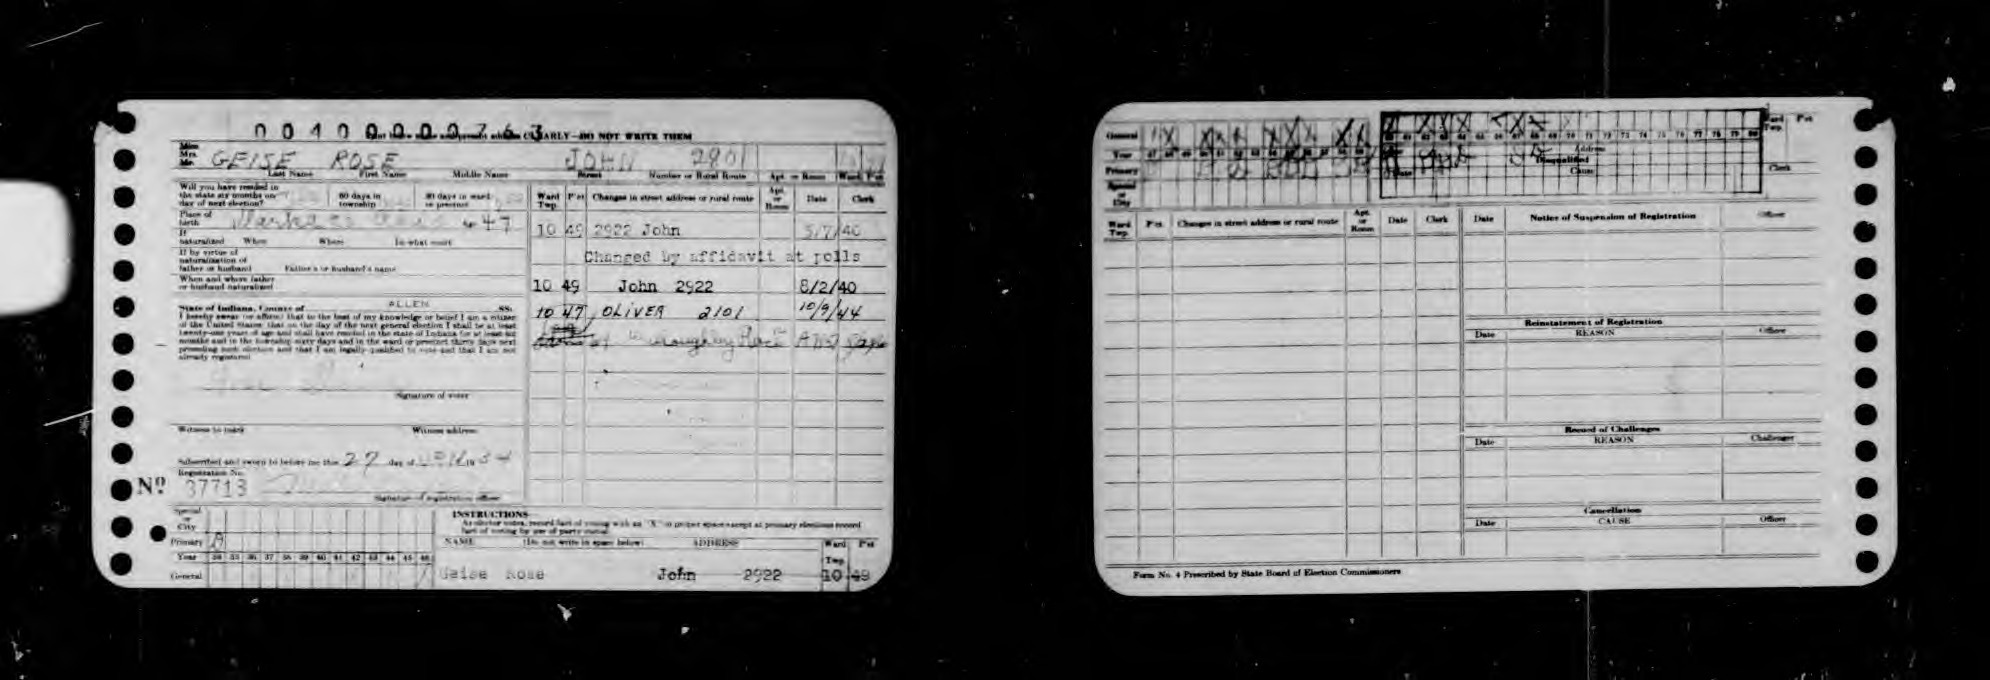 00400000763
Print Name and Present Address CLEARLY—DO NOT WRITE THEM
Miss
Mrs.
Mr. GEISE ROSE JOHN 2901
Last Name First Name Middle Name Street Number or Rural Route Apt. or Room Ward Pct
Will you have resided in the state six months on day of next election? 60 days in township 30 days in ward or precinct
Place of birth 47
If naturalized When Where In what court
If by virtue of naturalization of father or husband Father's or husband's name
When and where father or husband naturalized
State of Indiana, County of ALLEN SS:
I hereby swear (or affirm) that to the best of my knowledge or belief I am a citizen
of the United States; that on the day of the next general election I shall be at least
twenty-one years of age and shall have resided in the state of Indiana for at least six
months and in the township sixty days and in the ward or precinct thirty days next
preceding such election and that I am legally qualified to vote and that I am not
already registered.
Signature of voter
Witness to mark Witness address
Subscribed and sworn to before me this 27 day of 1934
Registration No.
No. 37713
Signature of registration officer
Ward Twp. P'ct Changes in street address or rural route Apt. or Room Date Clerk
10 49 2922 John 5/7/40
Changed by affidavit at polls
10 49 John 2922 8/2/40
10 47 OLIVER 2101 10/9/44
Special or City
Primary R
Year 34 35 36 37 38 39 40 41 42 43 44 45 46
General
INSTRUCTIONS
As elector votes, record fact of voting with an "X" in proper space except at primary elections record
fact of voting by use of party initial.
NAME (Do not write in space below) ADDRESS Ward Twp. Pct
Geise Rose John 2922 10 49
General
Year
Primary
Special or City
Address
Disqualified
Date Cause
Ward Twp. P'ct
Clerk
Ward Twp. P'ct Changes in street address or rural route Apt. or Room Date Clerk
Date Notice of Suspension of Registration Officer
Reinstatement of Registration
Date REASON Officer
Record of Challenges
Date REASON Challenger
Cancellation
Date CAUSE Officer
Form No. 4 Prescribed by State Board of Election Commissioners